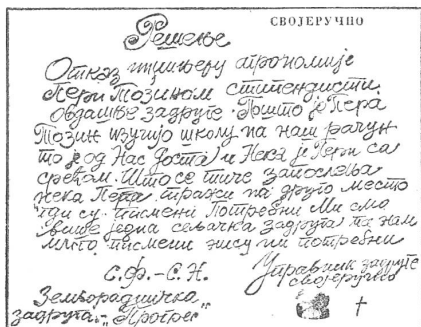 СВОЈЕРУЧНО
Решење
Отказ инжињеру агрономије
Пери Тозином стипендисти
овдашње задруге. Пошто је Пера
Тозин изучијо школу на наш рачун
то је од нас доста и нека је Пери са
срећом. Што се тиче запослења
нека Пера тражи на друго место
гди су писмени потребни Ми смо
више једна сељачка задруга па нам
млого писмени нису ни потребни
С.Ф.-С.Н.
Управник задруге
својеручно
Земљорадничка
задруга „Прогрес"
†